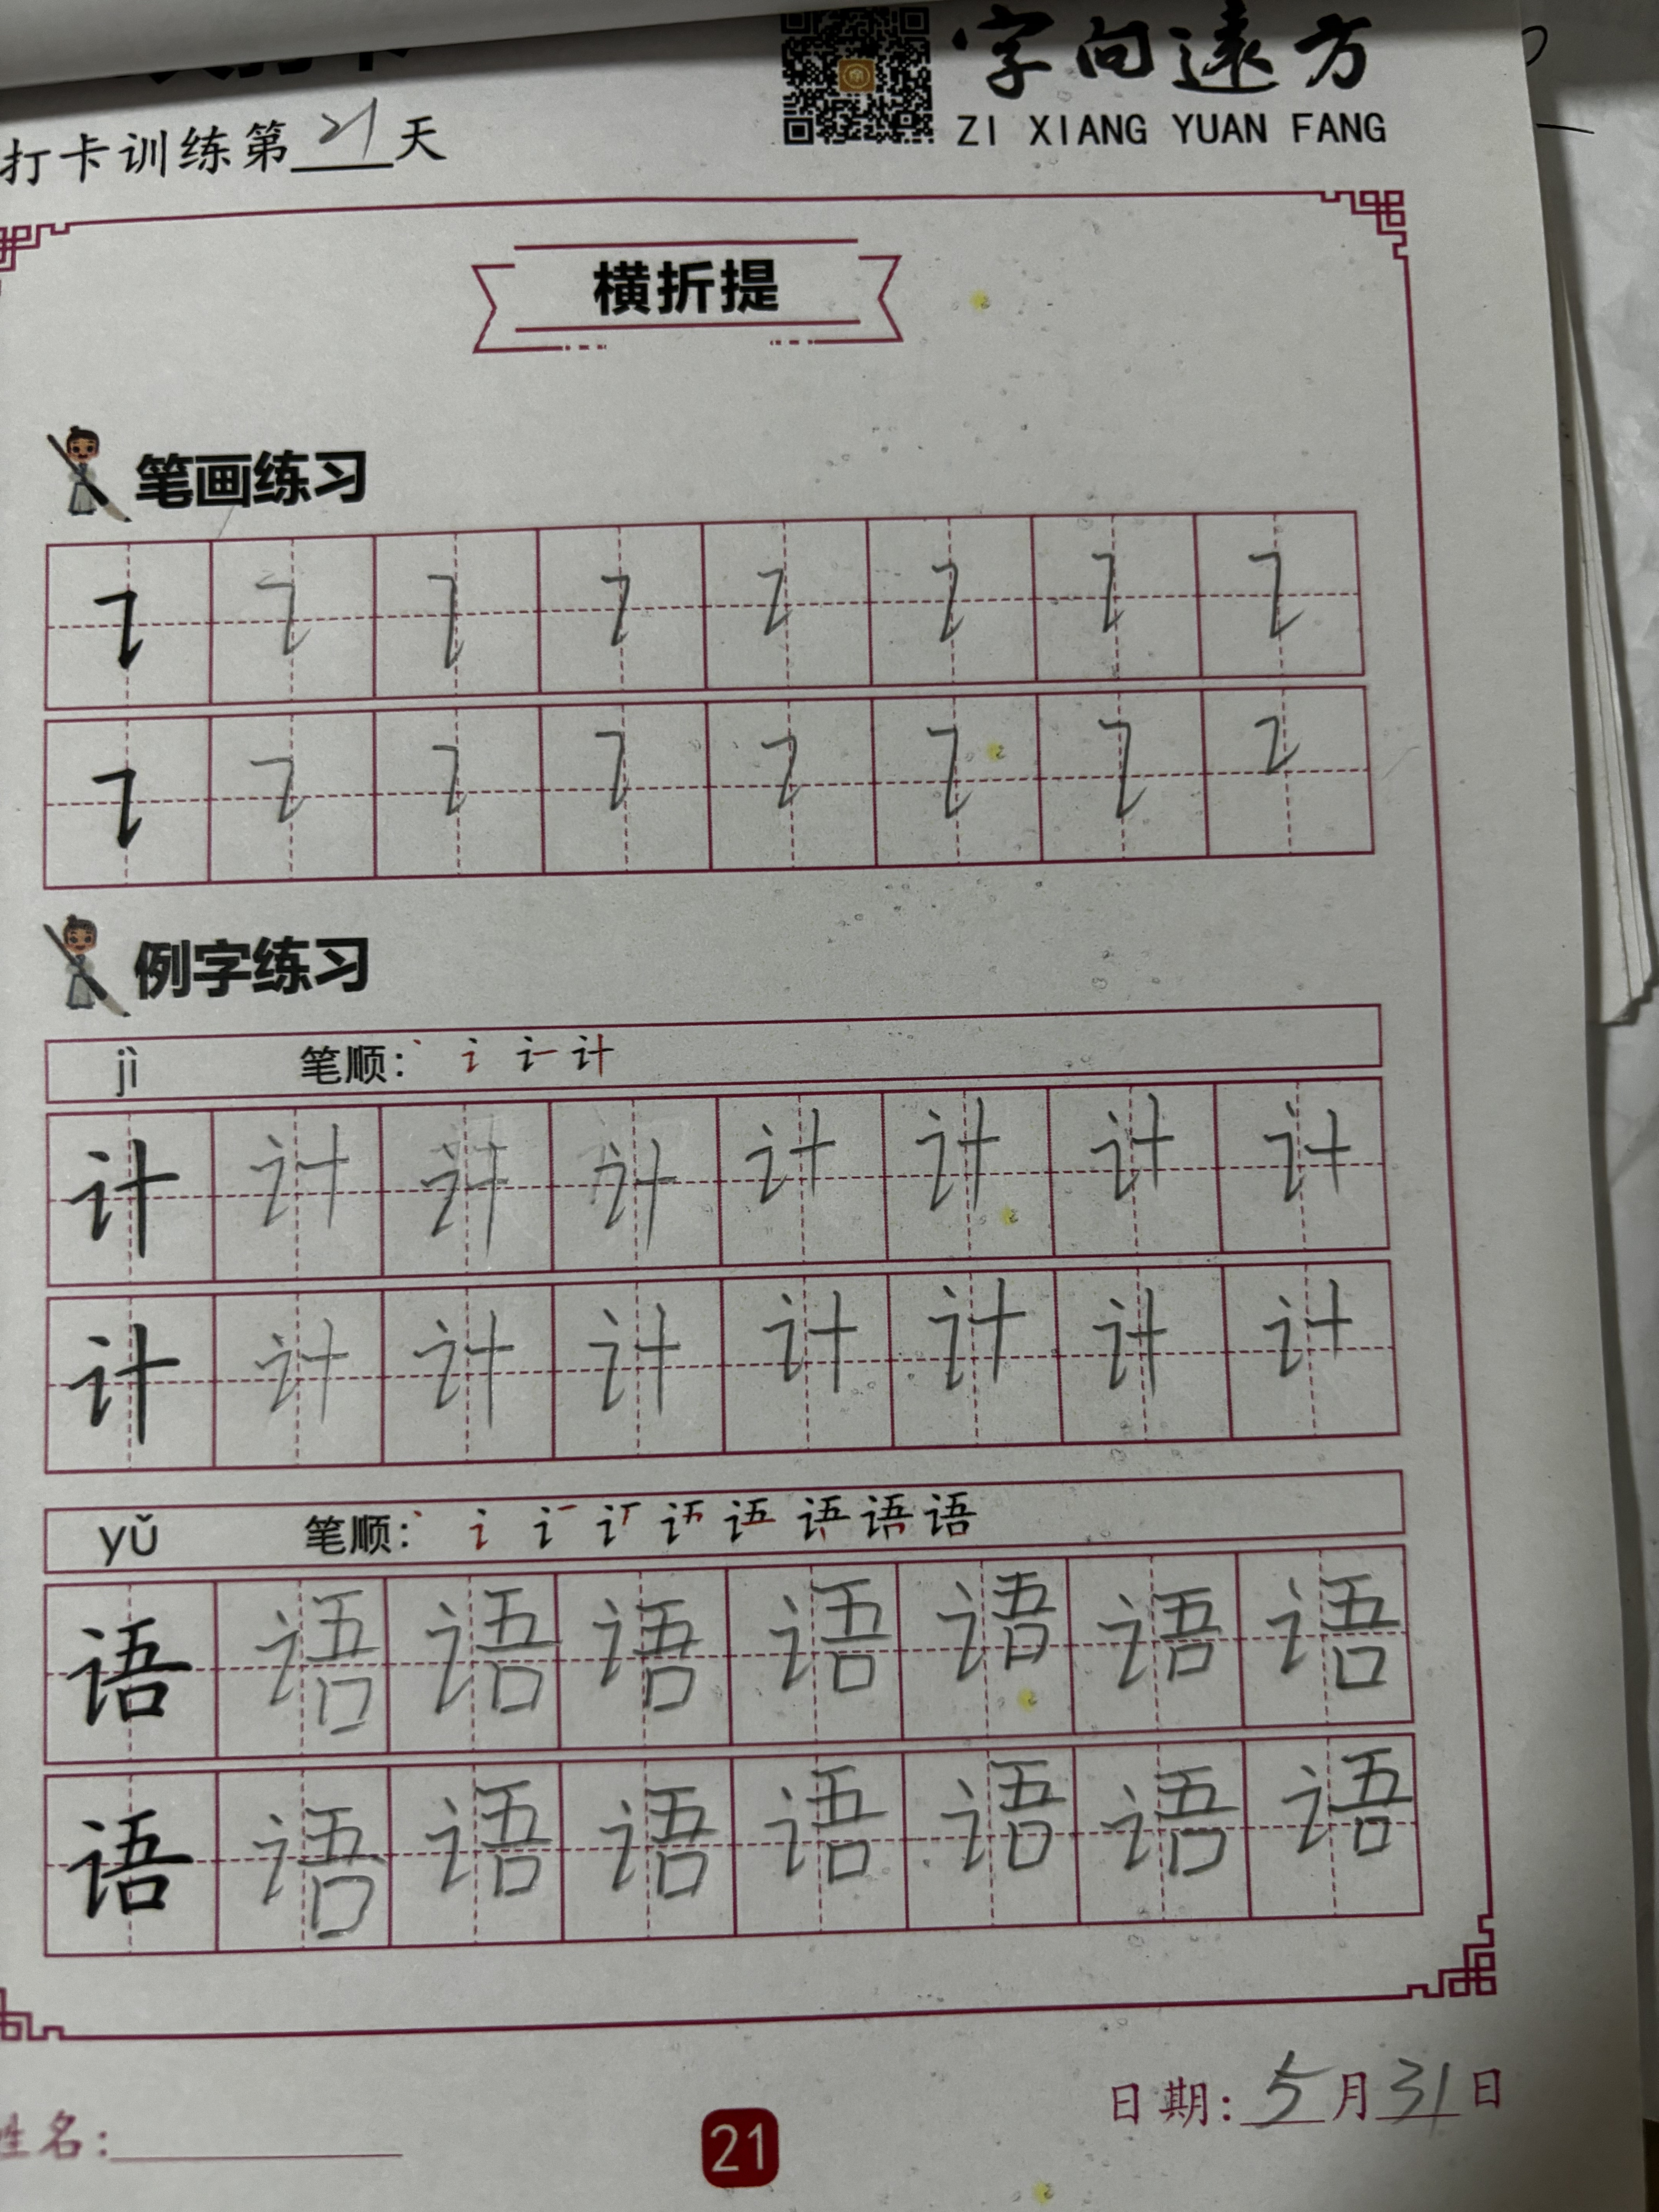 字向遠方
ZI XIANG YUAN FANG
打卡训练第21天
横折提
笔画练习
例字练习
jì 笔顺: 计
计 计 计 计 计 计 计 计
计 计 计 计 计 计 计 计
yǔ 笔顺: 语
语 语 语 语 语 语 语 语
语 语 语 语 语 语 语 语
日期: 5月31日
姓名:
21